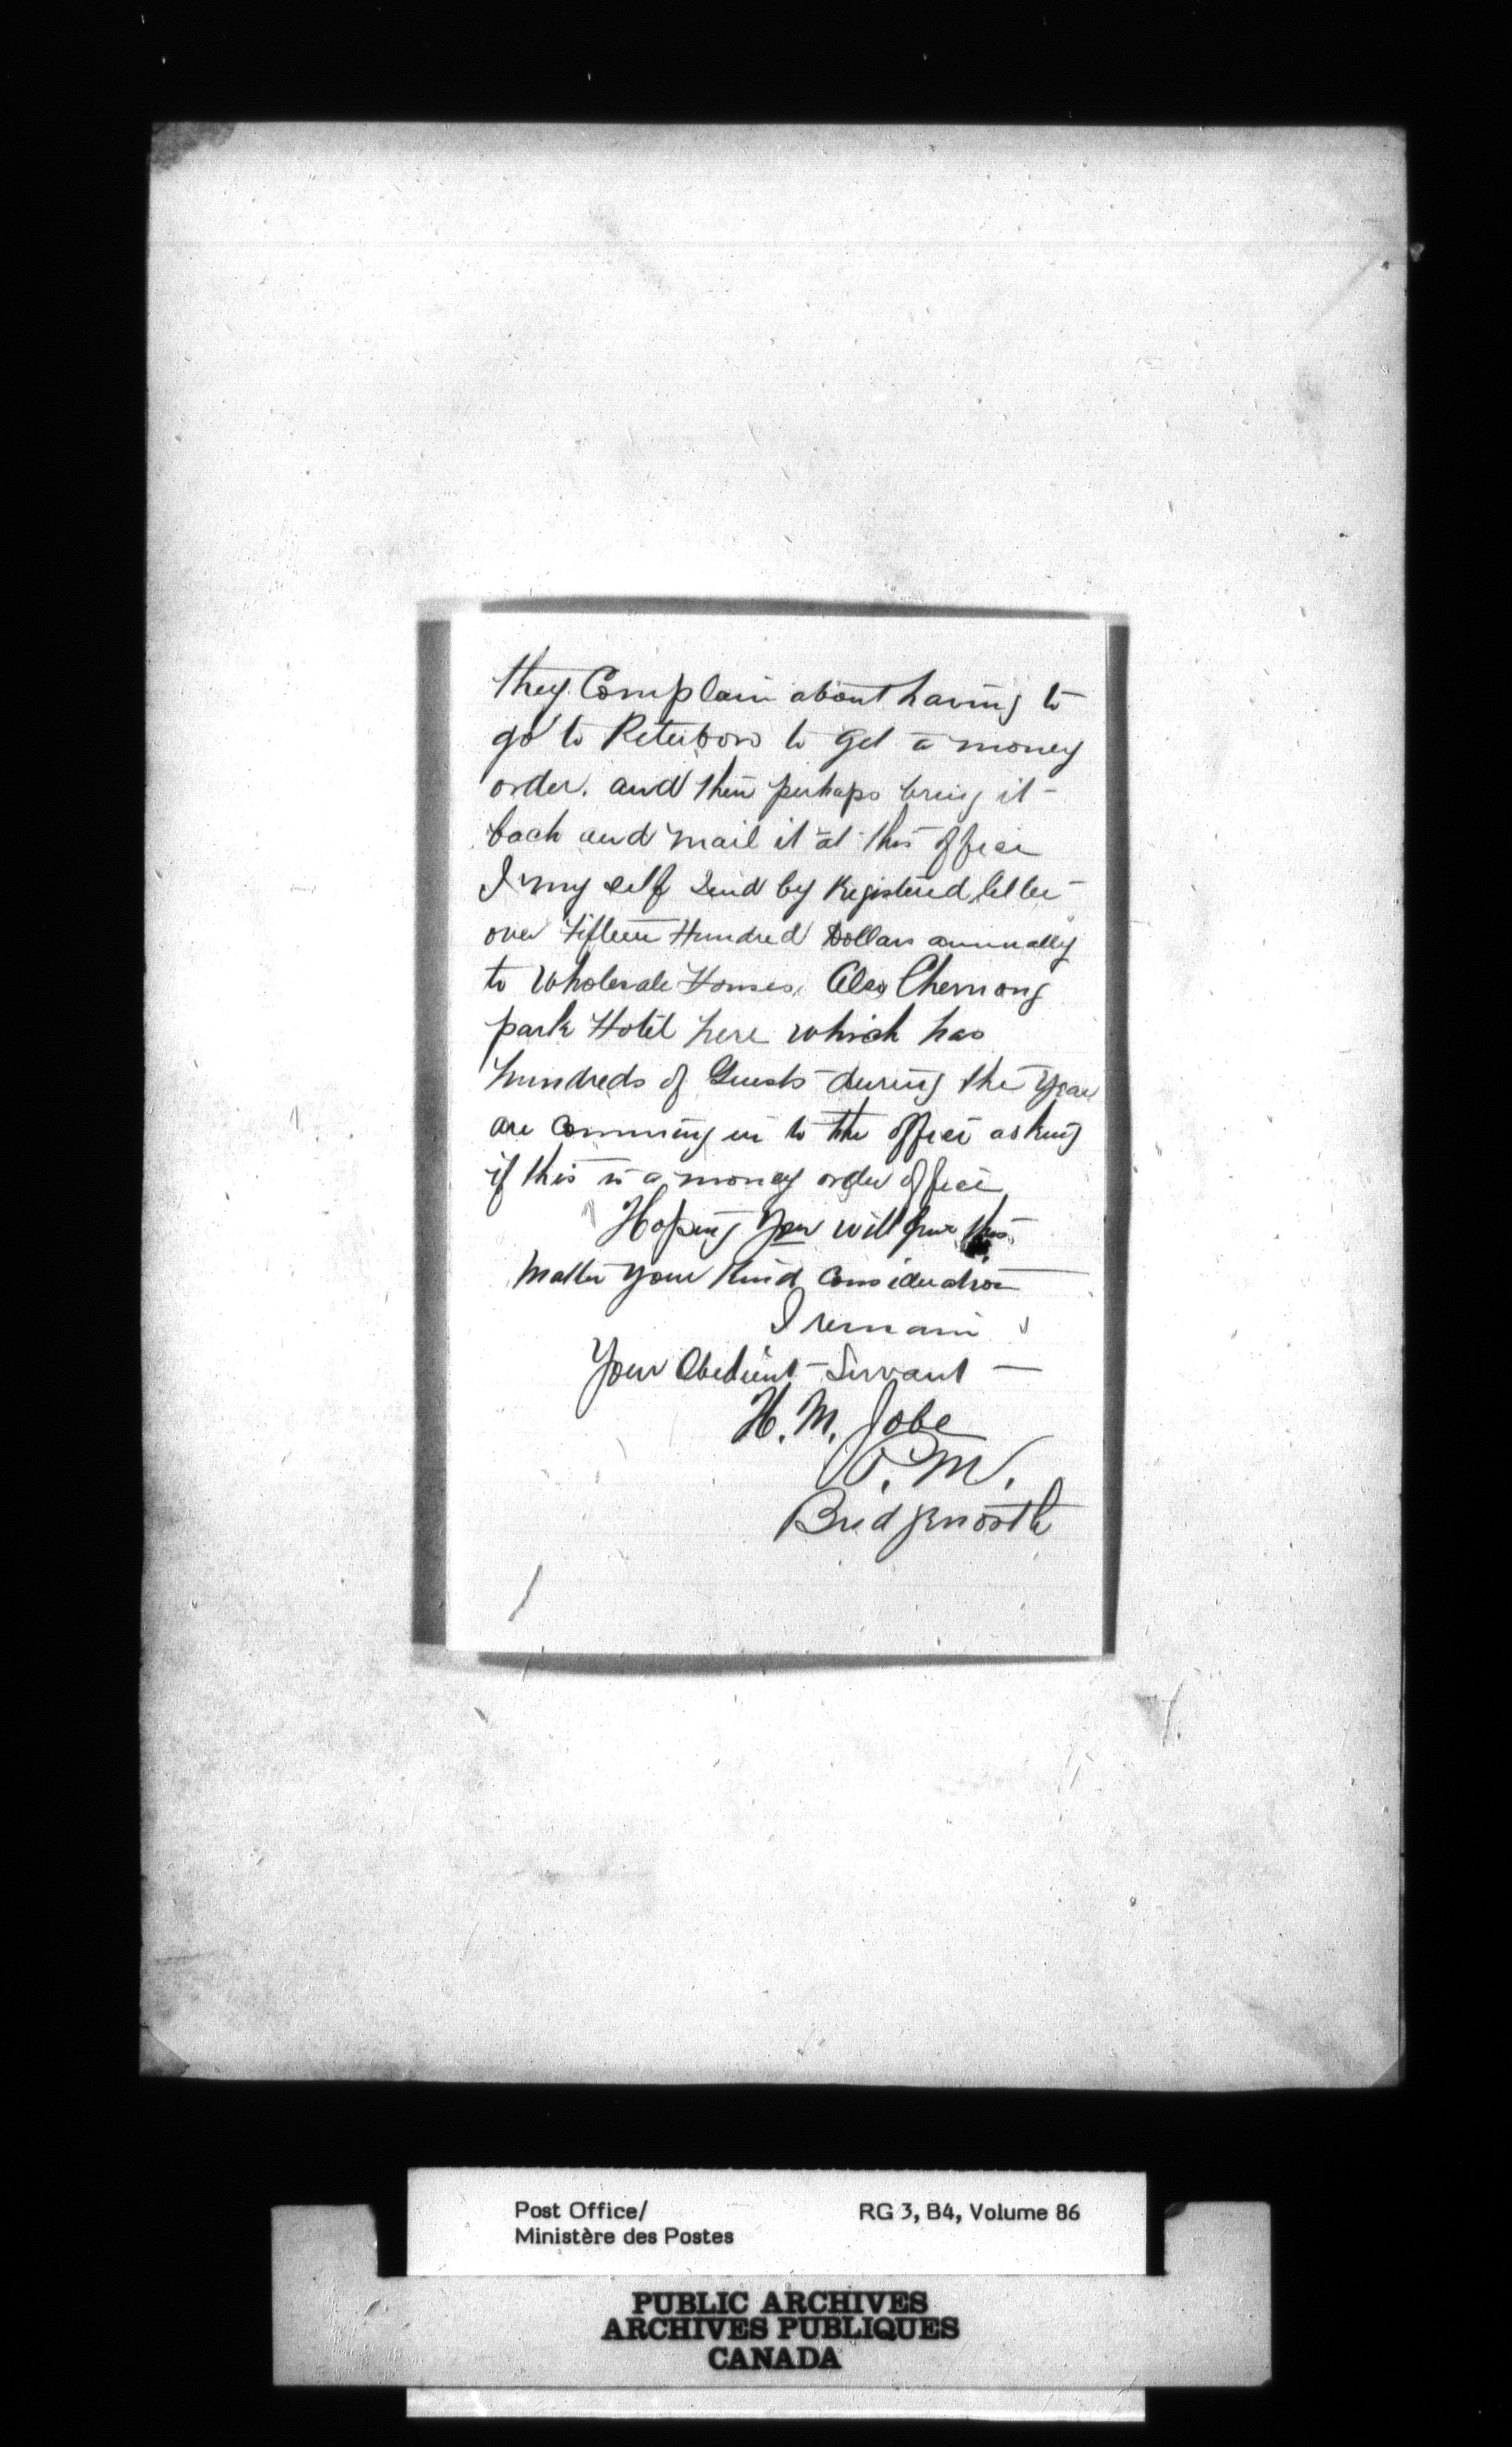 they Complain about having to
go to Peterboro to get a money
order. and then perhaps bring it
back and mail it at this office
I my self send by Registered letter
over Fifteen Hundred Dollars annually
to Wholesale Houses. Also Chemong
park Hotel here which has
hundreds of Guests during the year
are comming in to the office asking
if this is a money order office
Hoping you will give this
matter your kind Consideration
I remain
Your Obedient Servant
H. M. Jobe
P. M.
Bridgenorth
Post Office/ RG 3, B4, Volume 86
Ministère des Postes
PUBLIC ARCHIVES
ARCHIVES PUBLIQUES
CANADA